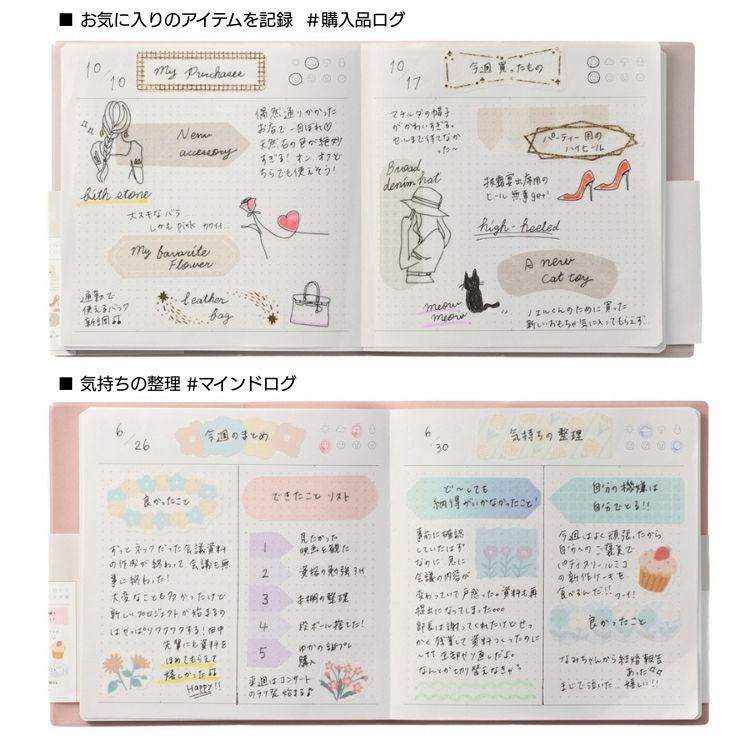 ■ お気に入りのアイテムを記録 #購入品ログ
10/10
My Purchases
New
accessory
偶然通りかかった
お店で一目ぼれ♡
天然石の色が絶妙
すぎる! オン オフど
ちらでも使えそう!
bith stone
大スキなバラ
しかも pink カワイイ...
My favarite
Flower
通勤で
使えるバッグ
新調♫
leather
bag
10/17
今週買ったもの
マチルダの帽子
がかわいすぎる。
セールまで待てなか
った〜
パーティー用の
ハイヒール
Broad
denim hat
披露宴出席用の
ヒール 無事get!
high-heeled
A new
Cat toy
meow
meow
ノエルくんのために買った
新しいおもちゃ 気に入ってもらえず...
■ 気持ちの整理 #マインドログ
6/26
今週のまとめ
良かったこと
ずっとネックだった会議資料
の作成が終わって会議も無
事に終わった!
大変なことも多かったけど
新しいプロジェクトが始まるの
はやっぱりワクワクする! 田中
先輩にも資料を
ほめてもらえて
嬉しかった♫
Happy!!
できたこと リスト
1 見たかった
映画を観た
2 資格の勉強 3H
3 本棚の整理
4 段ボール捨てた!
5 ゆかの緑プレ
購入
来週はコンサート
のチケ受 始まる♪
6/30
気持ちの整理
ど〜しても
納得がいかなかったこと!
事前に確認
していたはず
なのに 急に
会議の内容が
変わっていて戸惑った。資料も再
提出になってしまった。。。
部長は謝ってくれたけどせっ
かく残業して資料つくったのに
〜!! 全部やり直しだよ。
なんとか切り替えなきゃ〜
自分の機嫌は
自分でとる!!
今週はよく頑張ったから
自分へのご褒美で
パティスリールミコ
の新作ケーキを
食べるんだ!! ワーイ!
良かったこと
なみちゃんから結婚報告
あった☆☆
まじで泣いた... 嬉しい!!